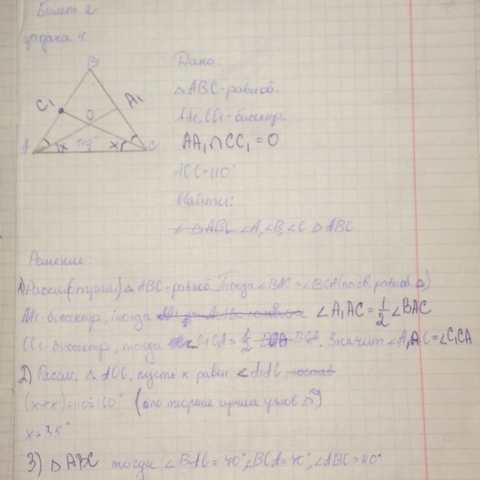 Билет 2
задача 4
B
C₁
A₁
O
A
x
110°
x
C
Дано:
△ABC-равноб.
AA₁, CC₁-биссектр.
AA₁∩CC₁=O
AOC=110°
Найти:
∠A,∠B,∠C △ABC
Решение:
1) △ABC-равноб. Тогда ∠BAC=∠BCA (по св. равноб △)
AA₁-биссектр, тогда ∠A₁AC=½∠BAC
CC₁-биссектр, тогда ∠C₁CA=½ BCA. Значит ∠A₁AC=∠C₁CA
2) Рассм. △AOC, пусть x равен ∠A₁AC
(x+x)+110=180° (по теореме сумме углов △)
x=35°
3) △ABC тогда ∠BAC=70°,∠BCA=70°,∠ABC=40°